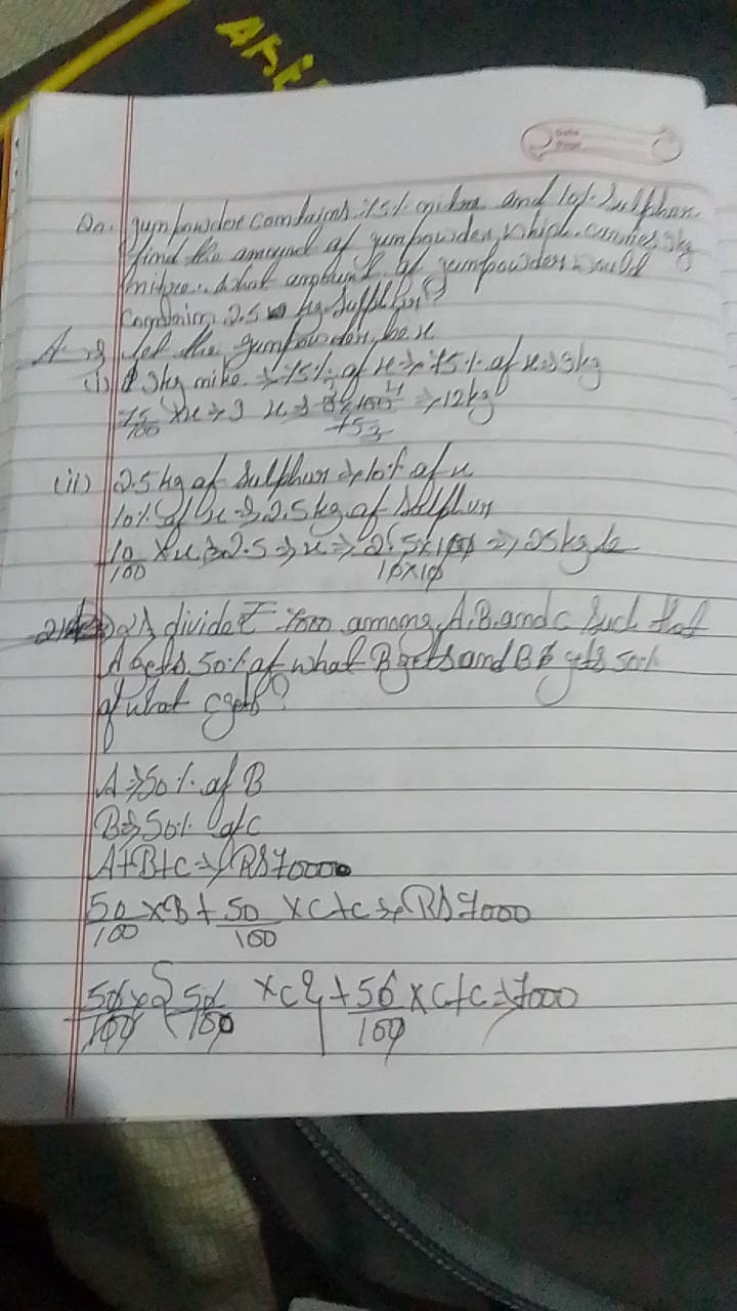 Qn. gumpowder contains 75% nitre and 10% Sulphur.
find the amount of gumpowder, which carries 9kg
nitre. What amount of gumpowder would
contain 2.5 kg Sulphur?
let the gumpowder be x
(i) 9kg nitre ⇒ 75% of x ⇒ 75% of x ⇒ 9kg
75/100 × x ⇒ 9 x ⇒ 9×100/75 ⇒ 12kg
(ii) 2.5 kg of Sulphur ⇒ 10% of x
10% of x ⇒ 2.5 kg of Sulphur
10/100 × x ⇒ 2.5 ⇒ x ⇒ 2.5×100/10×10 ⇒ 25kg
divide ₹ 7000 among A, B and C Such that
A gets 50% of what B gets and B gets 50%
of what C gets?
A ⇒ 50% of B
B ⇒ 50% of C
A+B+C ⇒ RS 7000
50/100 ×B + 50/100 ×C+C ⇒ RS 7000
50/100 × {50/100 ×C} + 50/100 ×C+C ⇒ 7000